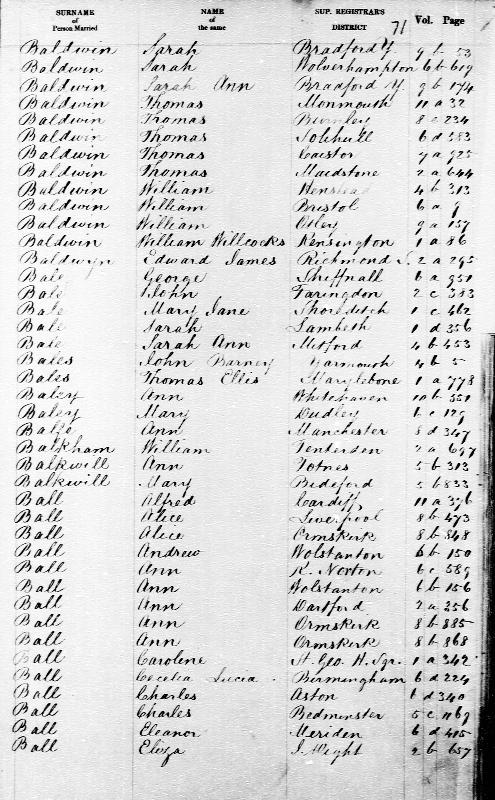 SURNAME of Person Married NAME of the same SUP. REGISTRAR'S DISTRICT 71 Vol. Page
Baldwin Sarah Bradford Y. 9 b 53
Baldwin Sarah Wolverhampton 6 b 619
Baldwin Sarah Ann Bradford Y. 9 b 174
Baldwin Thomas Monmouth 11 a 32
Baldwin Thomas Burnley 8 e 234
Baldwin Thomas Solihull 6 d 383
Baldwin Thomas Caistor 7 a 925
Baldwin Thomas Maidstone 2 a 644
Baldwin William Henstead 4 b 313
Baldwin William Bristol 6 a 9
Baldwin William Otley 9 a 157
Baldwin William Willcocks Kensington 1 a 86
Baldwyn Edward James Richmond S. 2 a 295
Bale George Shiffnall 6 a 951
Bale John Faringdon 2 c 383
Bale Mary Jane Shoreditch 1 c 462
Bale Sarah Lambeth 1 d 356
Bale Sarah Ann Mitford 4 b 453
Bales John Barney Yarmouth 4 b 5
Bales Thomas Ellis Marylebone 1 a 778
Balzy Ann Whitehaven 10 b 551
Balzy Mary Dudley 6 c 129
Balfe Ann Manchester 8 d 347
Balkham William Tenterden 2 a 697
Balkwill Ann Totnes 5 b 313
Balkwill Mary Bideford 5 b 833
Ball Alfred Cardiff 11 a 376
Ball Alice Liverpool 8 b 473
Ball Alice Ormskirk 8 b 848
Ball Andrew Wolstanton 6 b 150
Ball Ann K. Norton 6 c 589
Ball Ann Wolstanton 6 b 156
Ball Ann Dartford 2 a 356
Ball Ann Ormskirk 8 b 885
Ball Ann Ormskirk 8 b 868
Ball Caroline St. Geo. H. Sqr. 1 a 342
Ball Cecelia Lucea Birmingham 6 d 224
Ball Charles Aston 6 d 340
Ball Charles Bedminster 5 c 1169
Ball Eleanor Meriden 6 d 415
Ball Eliza I. Wight 2 b 657